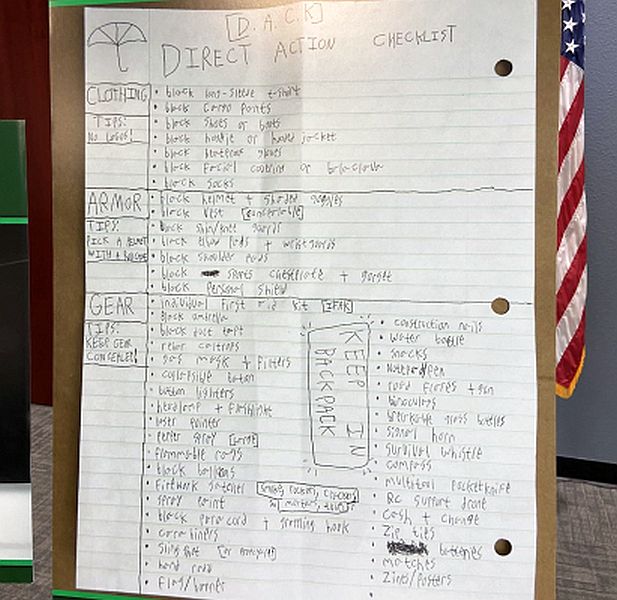 [D.A.C.K]
DIRECT ACTION CHECKLIST
CLOTHING
TIPS:
NO LOGOS!
• black long-sleeve t-shirt
• black cargo pants
• black shoes or boots
• black hoodie or hooded jacket
• black heatproof gloves
• black facial covering or balaclava
• black socks
ARMOR
TIPS:
PICK A HELMET
WITH A
• black helmet + shaded goggles
• black vest [concealable]
• black shin/knee guards
• black elbow pads + wrist guards
• black shoulder pads
• black sports chestplate + gorget
• black personal shield
GEAR
TIPS:
KEEP GEAR
CONCEALED!
• individual first aid kit [IFAK]
• black umbrella
• black duct tape
• rebar caltrops
• gas mask + filters
• collapsible baton
• butane lighters
• headlamp + flashlight
• laser pointer
• pepper spray [large]
• flammable rags
• black balloons
• firework satchel [smokes, rockets, crackers,
mortars,
• spray paint
• black paracord + grappling hook
• carabiners
• slingshot
• hand radio
• flag/banner
KEEP IN
BACKPACK
• construction nails
• water bottle
• snacks
• Notepad/pen
• road flares + gun
• binoculars
• breakable glass bottles
• signal horn
• survival whistle
• compass
• multitool pocketknife
• RC support drone
• Cash + change
• Zip ties
• batteries
• matches
• Zines/posters